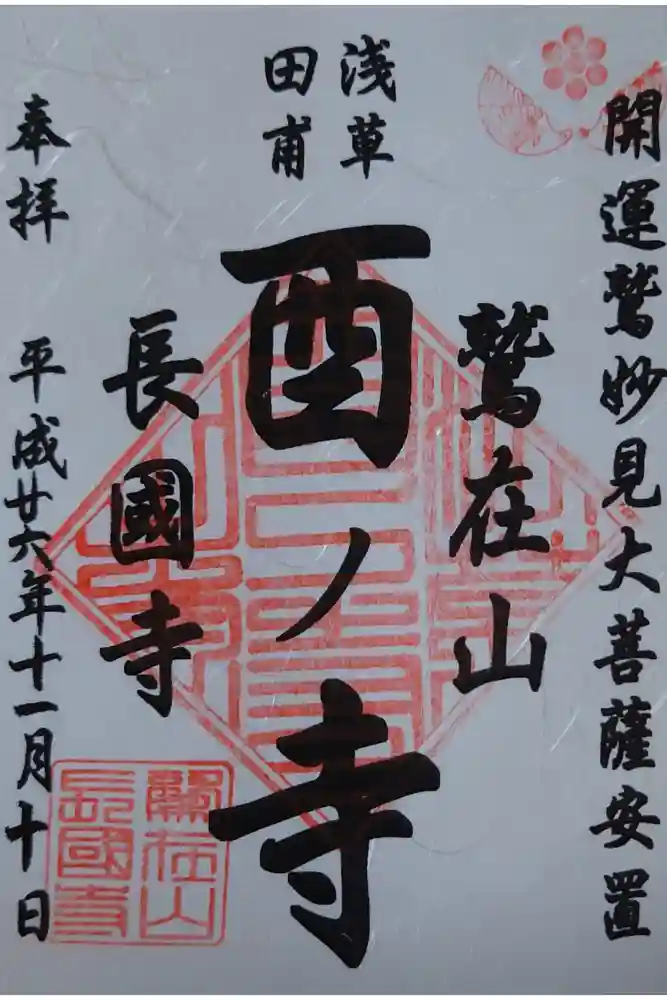 開運鷲妙見大菩薩安置
浅草
田甫
鷲在山
酉ノ寺
長國寺
奉拝　平成廿六年十一月十日
鷲在山
長國寺